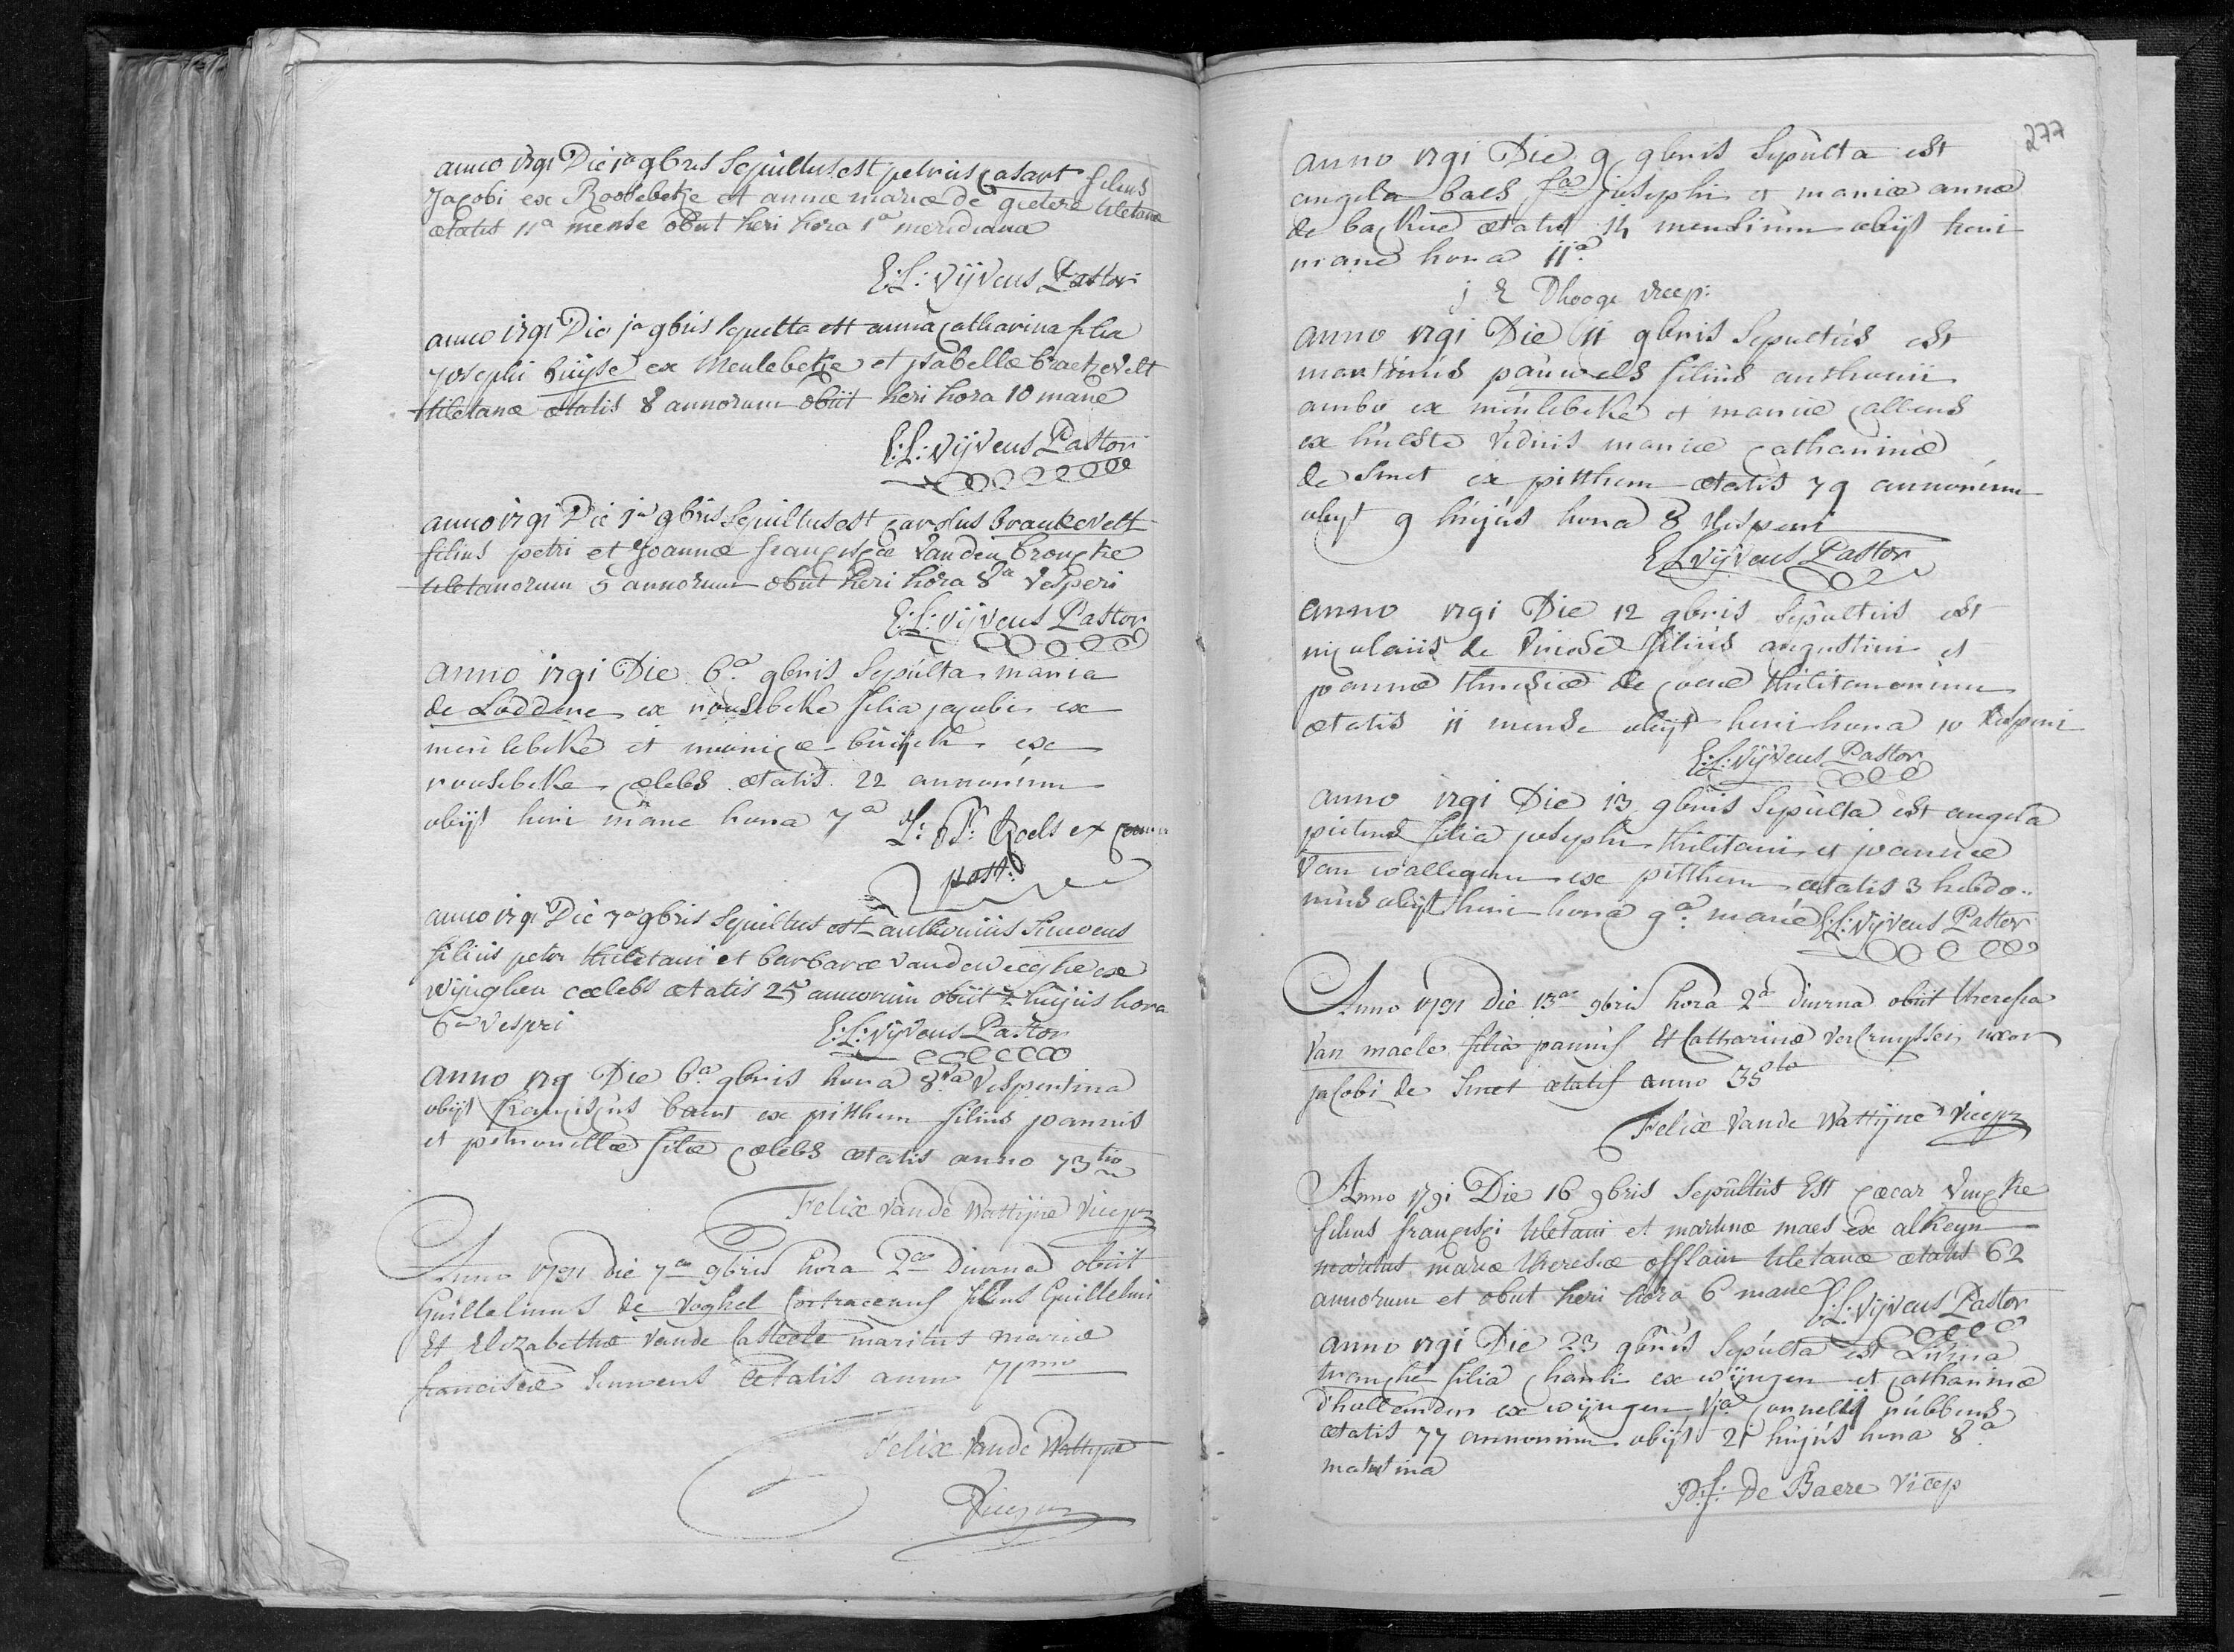 anno 1791 Die 1a 9bris Sepultus est petrus Casart filius
Jacobi ex Roosebeke et annæ mariæ de gietere tiletanæ
ætatis 11a mense obiit heri hora 1a meridiana
E:L: Vijvens Pastor
anno 1791 Die 1a 9bris Sepulta est anna Catharina filia
Josephi buijse ex Meulebeke et ysabellæ braekevelt
tiletanæ ætatis 8 annorum obiit heri hora 10 mane
E:L: Vijvens Pastor
anno 1791 Die 1a 9bris Sepultus est Carolus braekevelt
filius petri et Joannæ franciscæ Vanden broucke
tiletanorum 5 annorum obiit heri hora 8a Vesperi
E:L: Vijvens Pastor
anno 1791 Die 6a 9bris Sepulta maria
de Loddere ex rousebeke filia jacobi ex
meulebeke et monicæ buijck ex
rousebeke cælebs ætatis 22 annorum
obijt heri mane hora 7a J: F: Roels ex
past:
anno 1791 Die 7a 9bris Sepultus est anthonius Simoens
filius petri thiletani et barbaræ vandewieghe ex
Wijnghen cælebs ætatis 25 annorum obiit 7 hujus hora
6a Vespri E:L: Vijvens Pastor
anno 179 Die 6a 9bris hora 8va Vespertina
obijt franciscus baert ex pitthem filius joannis
et petronillæ filæ cælebs ætatis anno 73tio
Felix Vande Wattijne Vicep
Anno 1791 die 7a 9bris hora 2da Diurna obiit
Guillelmus de Voghel Cortracenus filius Guillelmi
Et Elizabethæ Vande Casteele maritus mariæ
franciscæ Simoens ætatis anno 71mo
Felix Vande Wattyne
Vicep
277
anno 1791 Die 9 9bris Sepulta est
angela baes fa josephi et mariæ annæ
de backere ætatis 14 mensium obijt heri
mane hora 11a
j E Dhooge vicep:
anno 1791 Die 11 9bris Sepultus est
martinus pauwels filius anthonii
ambo ex meulebeke et mariæ Callens
ex hulste Viduus mariæ Catharinæ
de Smet ex pitthem ætatis 79 annorum
obijt 9 hujus hora 8 Vesperi
E L Vijvens Pastor
anno 1791 Die 12 9bris Sepultus est
nicolaus de Vriese filius augustini et
joannæ theresiæ de Coene thiletanorum
ætatis 11 mense obijt heri hora 10 Vesperi
E:L: Vijvens Pastor
anno 1791 Die 13 9bris Sepulta est angela
pieters filia josephi thiletani et joannæ
Van wallegem ex pitthem ætatis 3 hebdo
mus obijt heri hora 9a mane E:L: Vijvens Pastor
Anno 1791 Die 13a 9bris hora 2a diurna obiit theresia
Van maele filia joannis Et Catharinæ Vercruyssen uxor
jacobi de Smet ætatis anno 35to
Felix Vande Wattijne Vicep
Anno 1791 Die 16 9bris Sepultus Est Cæcar Vincke
filius francisci tiletani et martinæ maes ex alkeyn
maritus mariæ theresiæ offlain tiletanæ ætatis 62
annorum et obiit heri hora 6 mane E:L: Vijvens Pastor
anno 1791 Die 23 9bris Sepulta est Livina
tranché filia Charli ex wijngen et Catharinæ
d'hollander ex wijngen Va Cornelij rubbens
ætatis 77 annorum obijt 21 hujus hora 8a
matutina
P:f: De Baere Vicep